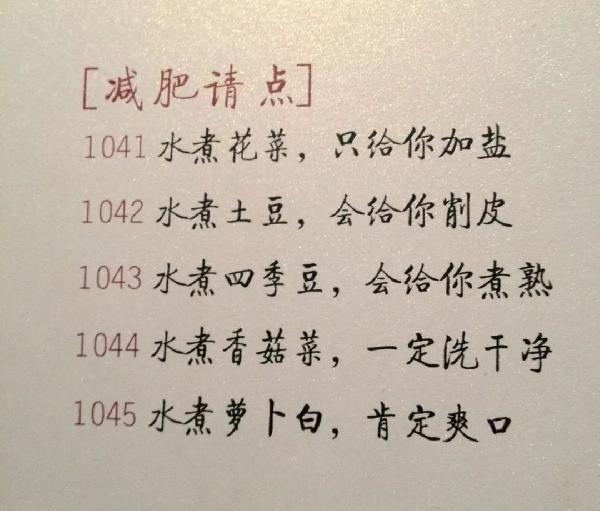 [减肥请点]
1041 水煮花菜，只给你加盐
1042 水煮土豆，会给你削皮
1043 水煮四季豆，会给你煮熟
1044 水煮香菇菜，一定洗干净
1045 水煮萝卜白，肯定爽口